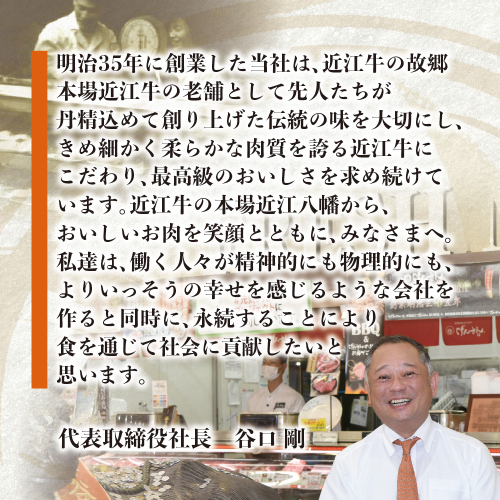 明治35年に創業した当社は、近江牛の故郷
本場近江牛の老舗として先人たちが
丹精込めて創り上げた伝統の味を大切にし、
きめ細かく柔らかな肉質を誇る近江牛に
こだわり、最高級のおいしさを求め続けて
います。近江牛の本場近江八幡から、
おいしいお肉を笑顔とともに、みなさまへ。
私達は、働く人々が精神的にも物理的にも、
よりいっそうの幸せを感じるような会社を
作ると同時に、永続することにより
食を通じて社会に貢献したいと
思います。
代表取締役社長　谷口 剛
BBQ